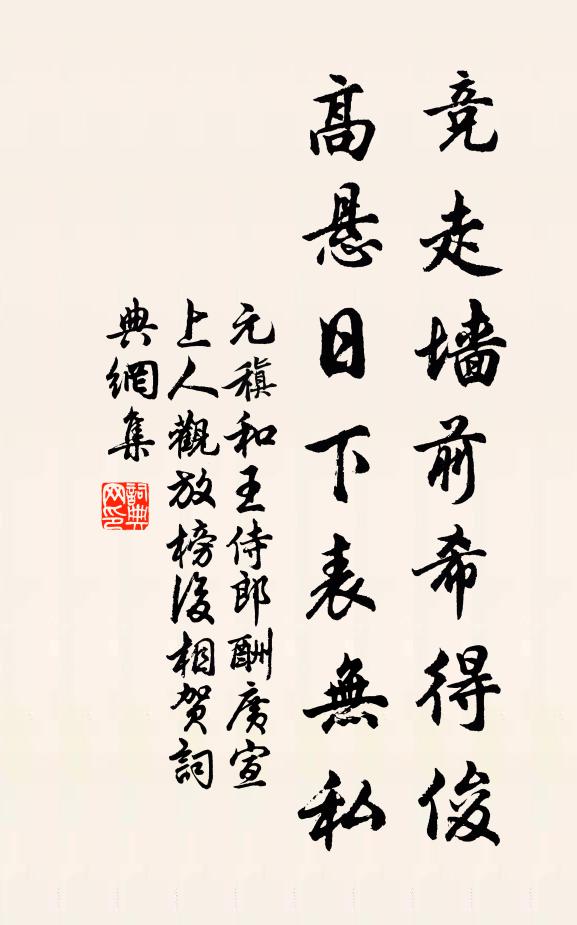 竞走墙前希得俊
高悬日下表無私
元稹和王侍郎酬廣宣
上人觀放榜後相贺詞
典網集
詞典网印